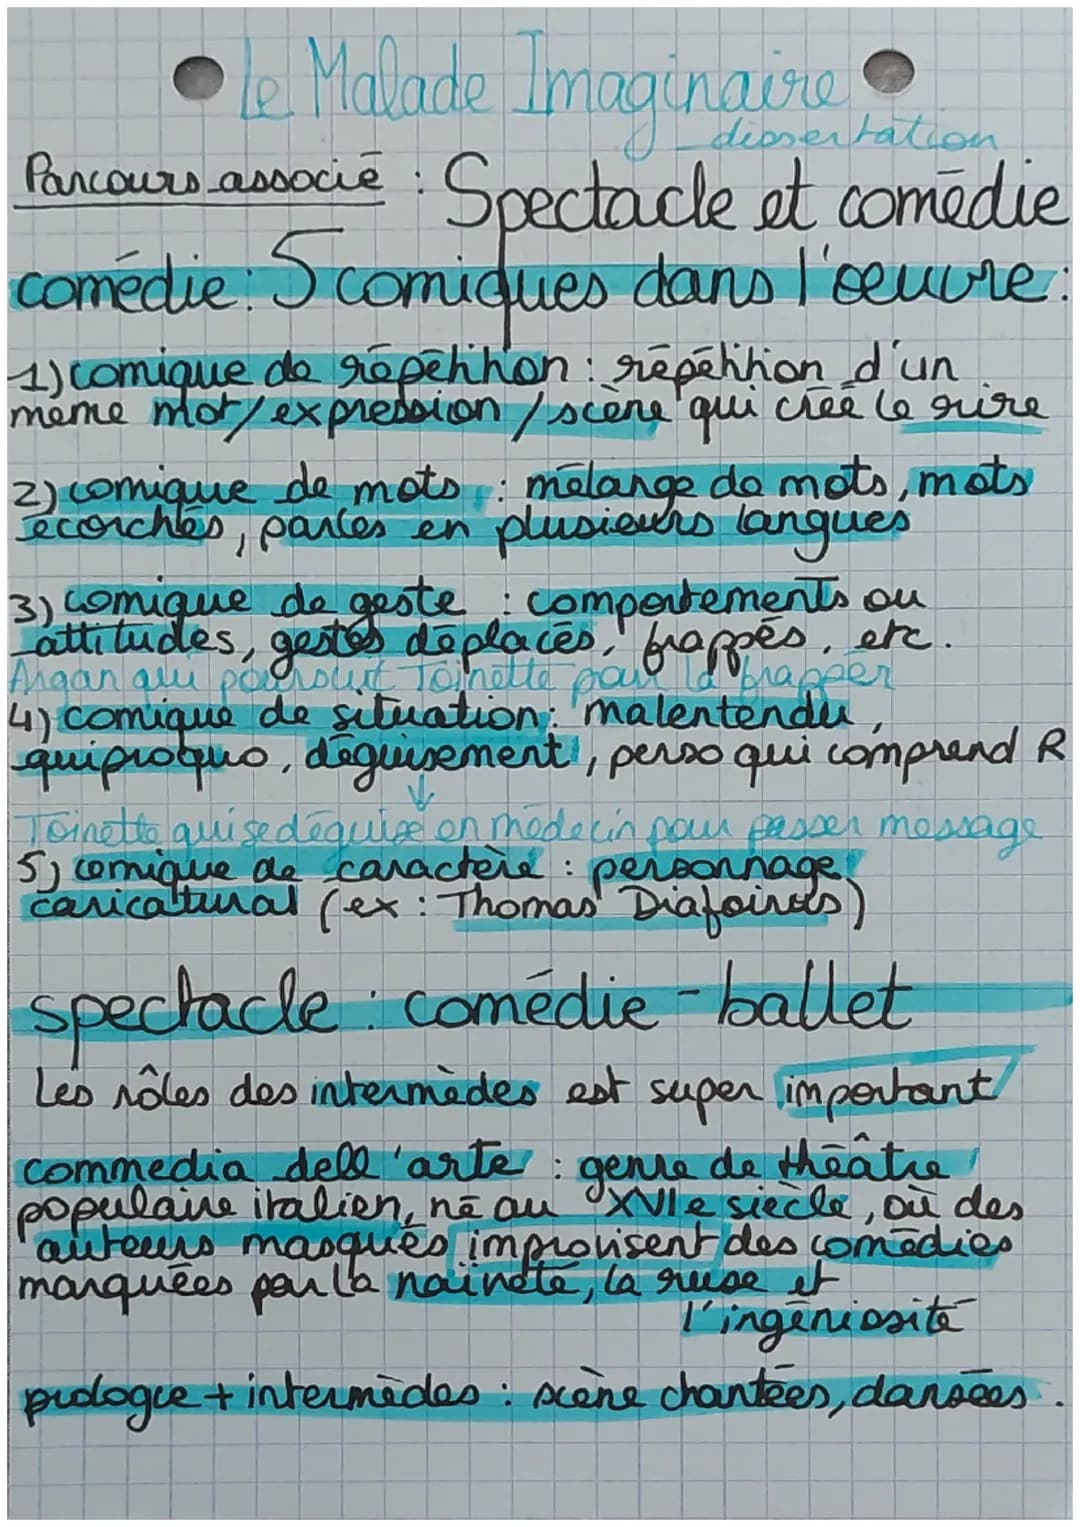 Le Malade Imaginaire
dissertation
Parcours associé : Spectacle et comédie
comédie : 5 comiques dans l'oeuvre :
1) comique de répétition : répétition d'un
même mot/expression/scène qui crée le rire
2) comique de mots : mélange de mots, mots
écorchés, parlés en plusieurs langues
3) comique de geste : comportements ou
attitudes, gestes déplacés, frappés, etc.
Argan qui poursuit Toinette pour la frapper
4) comique de situation : malentendu,
quiproquo, déguisement, perso qui comprend R
↓
Toinette qui se déguise en médecin pour passer message
5) comique de caractère : personnage
caricatural (ex : Thomas Diafoirus)
spectacle : comédie-ballet
Les rôles des intermèdes est super important
commedia dell'arte : genre de théâtre
populaire italien, né au XVIe siècle, où des
auteurs masqués improvisent des comédies
marquées par la naïneté, la ruse et
l'ingéniosité
prologue + intermèdes : scène chantées, dansées.